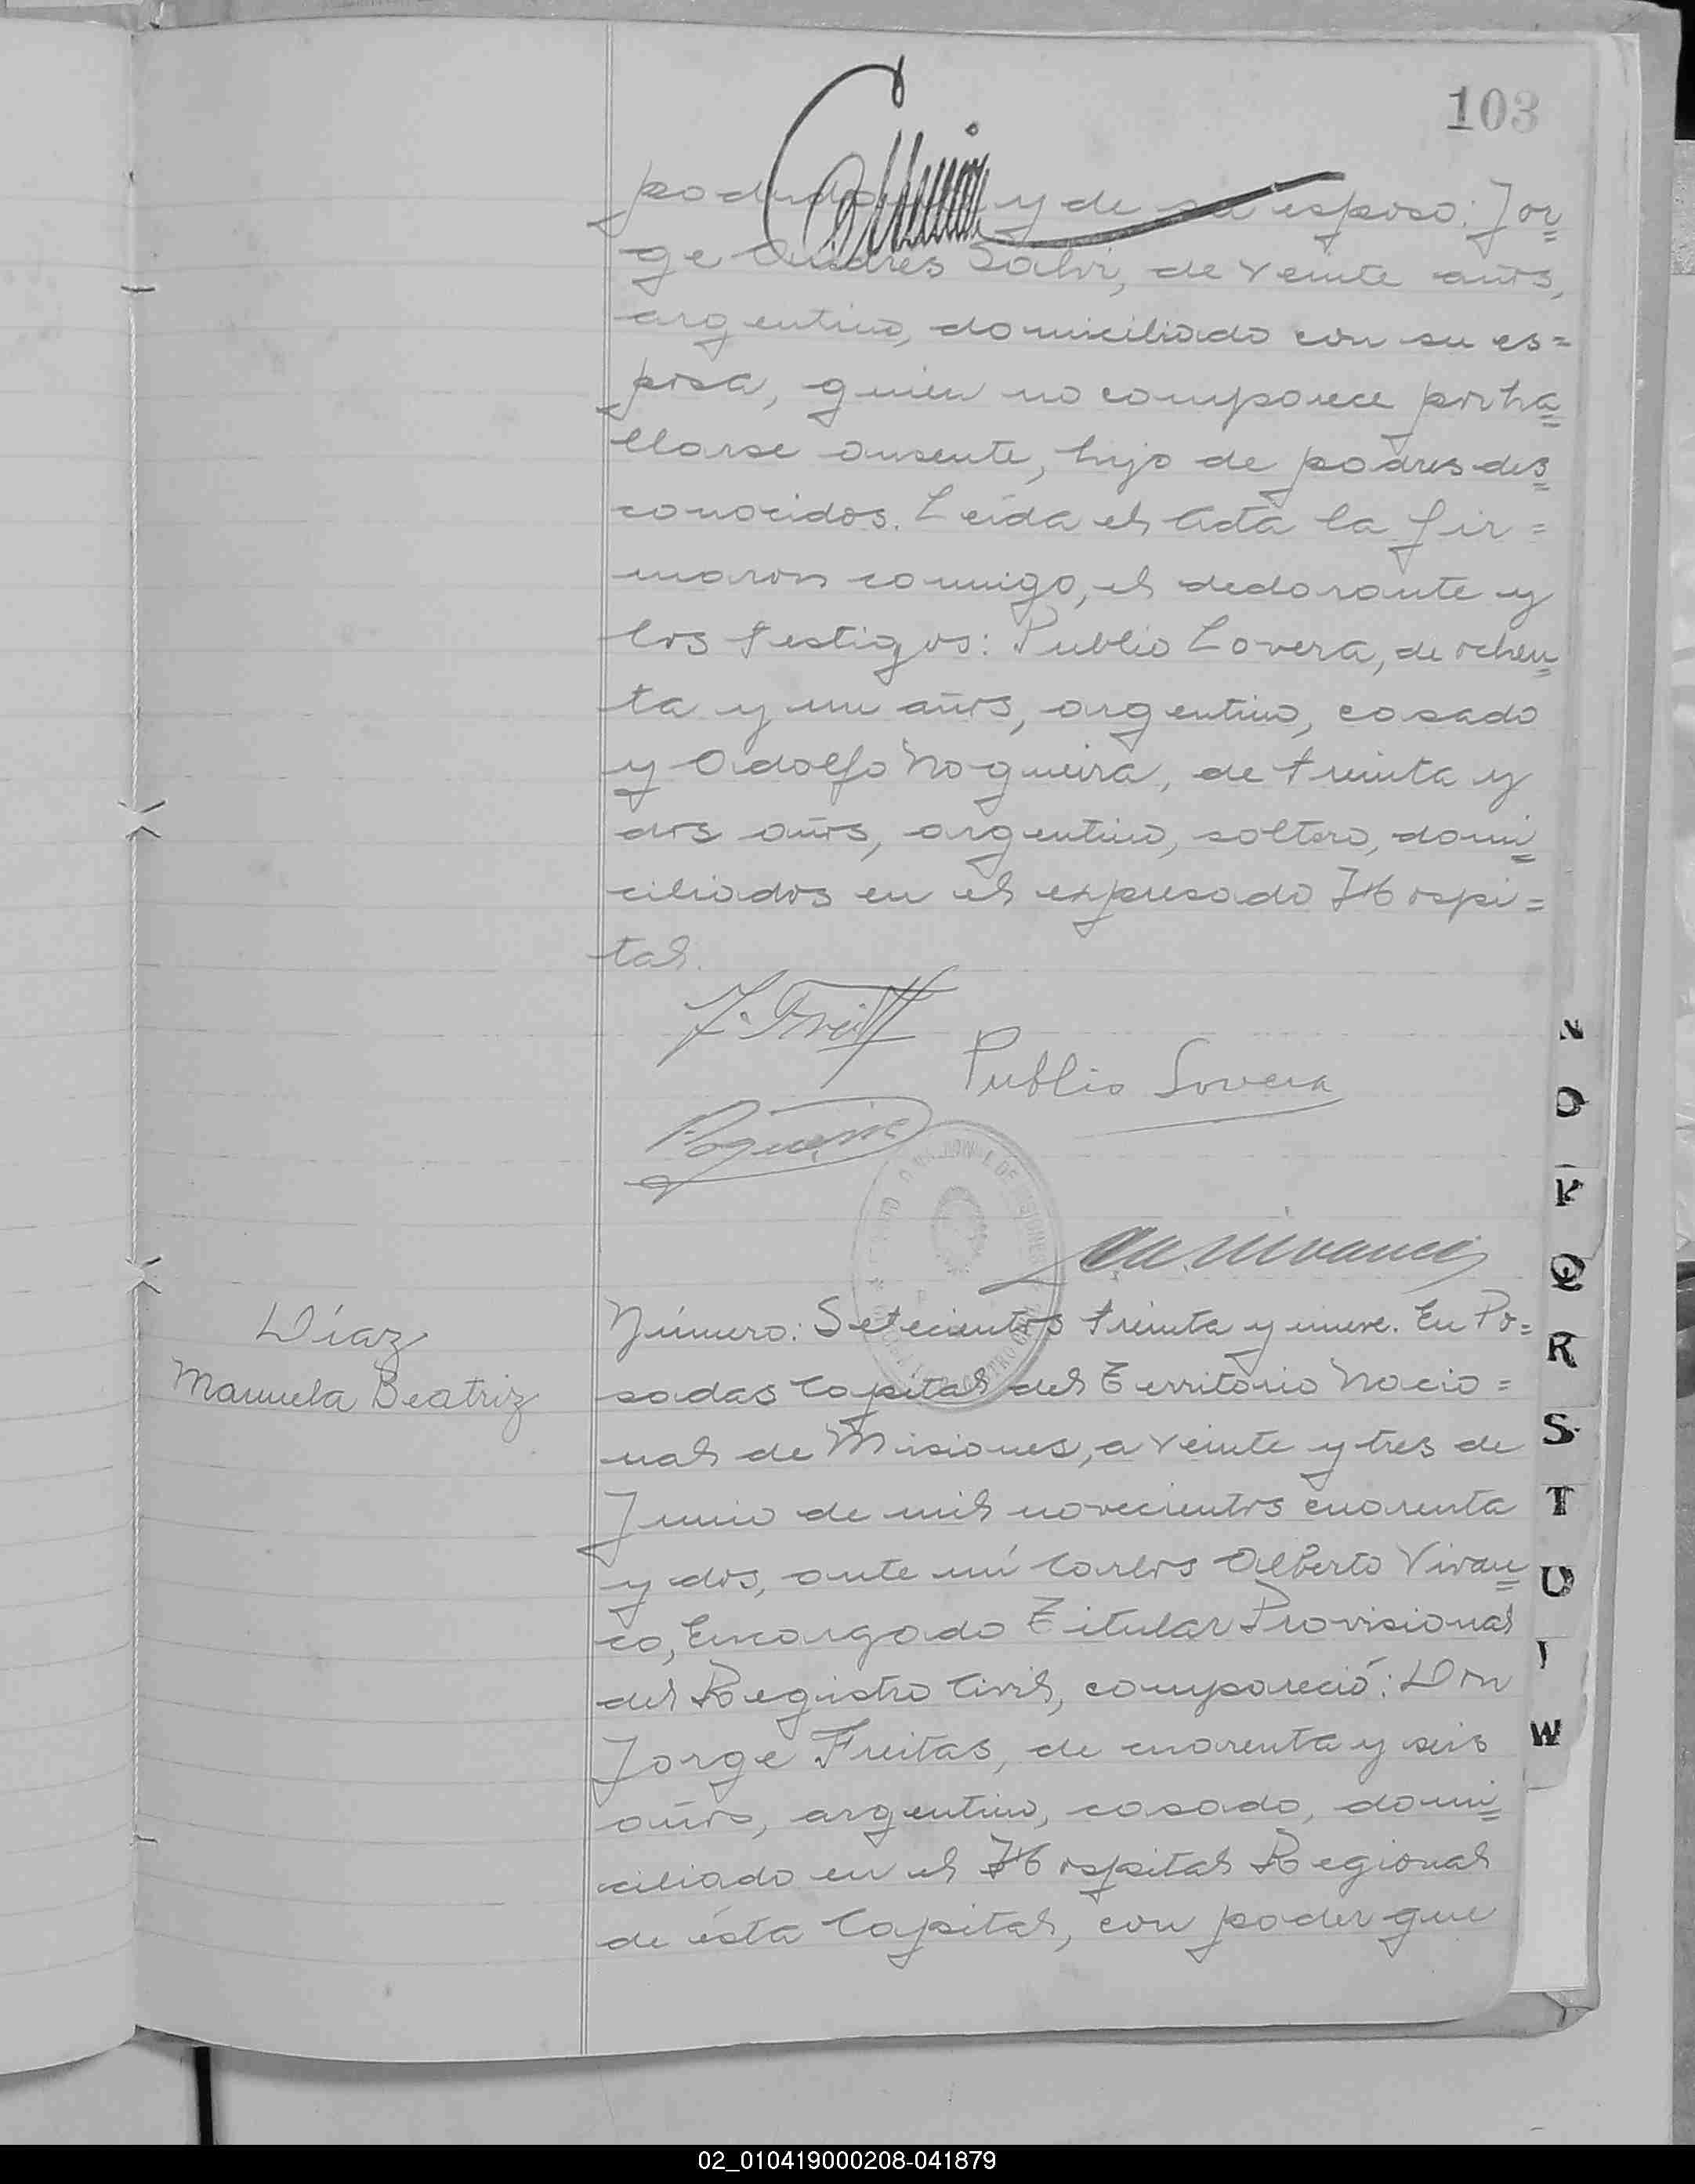 103
y de su esposo: Jor=
ge Andres Salvi, de veinte años,
argentino, domiciliado con su es=
posa, quien no comparece por ha=
llarse ausente, hijo de padres des=
conocidos. Leída el Acta la fir=
maron conmigo, el declarante y
los testigos: Publio Lovera, de ochen=
ta y un años, argentino, casado
y Adolfo Nogueira, de treinta y
dos años, argentino, soltero, domi=
ciliados en el expresado Hospi=
tal.
Publio Lovera
Díaz
Manuela Beatriz
Número: Setecientos treinta y nueve. En Po=
sadas Capital del Territorio Nacio=
nal de Misiones, a veinte y tres de
Junio de mil novecientos cuarenta
y dos, ante mí Carlos Alberto Vivan=
co, Encargado Titular Provisional
del Registro Civil, compareció: Don
Jorge Freitas, de cuarenta y seis
años, argentino, casado, domi=
ciliado en el Hospital Regional
de ésta Capital, con poder que
N
O
P
Q
R
S
T
U
W
02_010419000208-041879